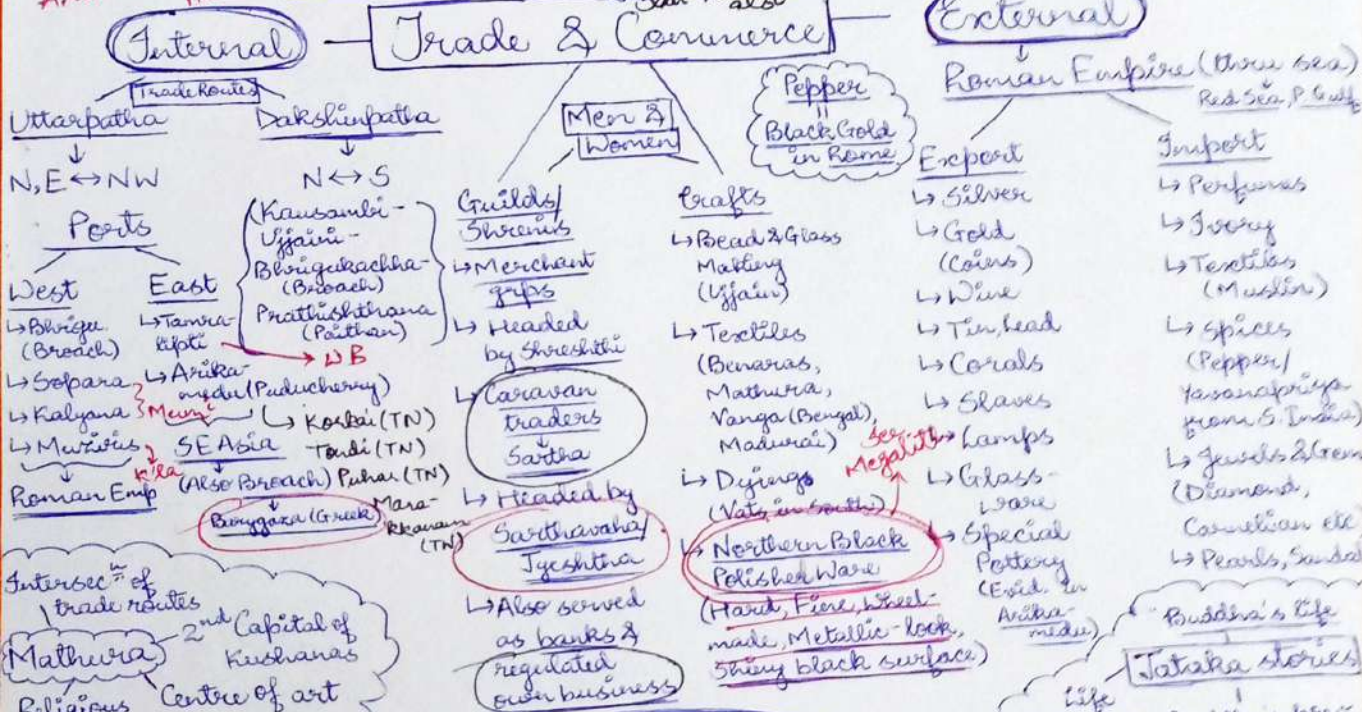 Trade & Commerce
also
Internal
Trade Routes
Uttarpatha
N, E ↔ NW
Dakshinpatha
N ↔ S
(Kausambi-
Ujjaini-
Bhrigukachha-
(Broach)
Prathishthana
(Paithan)
Ports
West
↳ Bhrigu.
(Broach)
↳ Sopara
↳ Kalyana
↳ Muziris
Roman Emp
East
↳ Tamra-
lipti
→ WB
↳ Arika-
medu (Puducherry)
↳ Korkai (TN)
Tondi (TN)
Puhar (TN)
Mara-
kkanam
(TN)
SE Asia
(Also Broach)
Barygaza (Greek)
Intersecn of
trade routes
Mathura
2nd Capital of
Kushanas
Religious
Centre of art
Men &
Women
Guilds/
Shrenis
↳ Merchant
grps
↳ Headed
by Shreshthi
↳ Caravan
traders
Sartha
↳ Headed by
Sarthavaha/
Jyeshtha
↳ Also served
as banks &
regulated
own business
Crafts
↳ Bead & Glass
Making
(Ujjain)
↳ Textiles
(Benaras,
Mathura,
Vanga (Bengal),
Madurai)
↳ Dyeings
(Vats in South)
See
Megalith
↳ Northern Black
Polisher Ware
(Hard, Fine, Wheel-
made, Metallic-look,
Shiny black surface)
Pepper
=
Black Gold
in Rome
External
Roman Empire (thru sea)
Red Sea, P. Gulf
Export
↳ Silver
↳ Gold
(Coins)
↳ Wine
↳ Tin, lead
↳ Corals
↳ Slaves
↳ Lamps
↳ Glass-
ware
↳ Special
Pottery
(Evid. in
Arika-
medu)
Import
↳ Perfumes
↳ Ivory
↳ Textiles
(Muslin)
↳ Spices
(Pepper/
Yavanapriya
from S. India)
↳ Jewels & Gem
(Diamond,
Carnelian etc
↳ Pearls, Sandal
Buddha's life
Jataka stories
Life